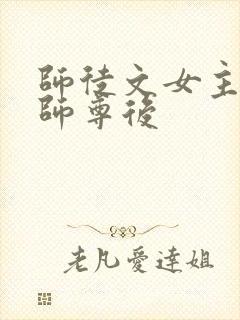 師徒文女主
師尊後
老凡愛達姐